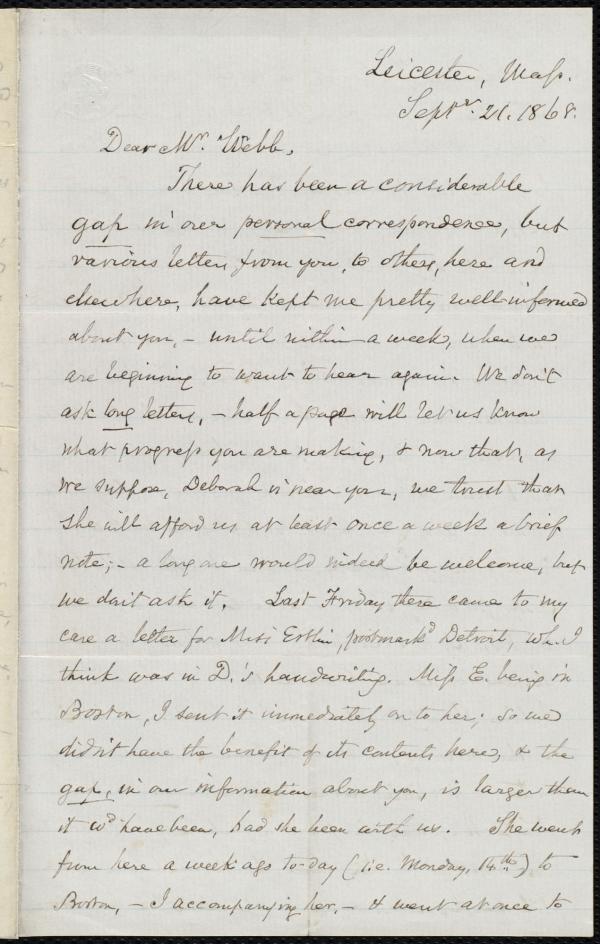 Leicester, Mass.
Septr. 21. 1868.
Dear Mr. Webb,
There has been a considerable
gap in our personal correspondence, but
various letters from you, to others, here and
elsewhere, have kept me pretty well informed
about you, – until within a week, when we
are beginning to want to hear again. We don't
ask long letters, – half a page will let us know
what progress you are making, & now that, as
we suppose, Deborah is near you, we trust that
she will afford us at least once a week a brief
note; – a long one would indeed be welcome, but
we don't ask it. Last Friday there came to my
care a letter for Miss Estlin, postmarkd Detroit, wh. I
think was in D.'s handwriting. Miss E. being in
Boston, I sent it immediately on to her; so we
didn't have the benefit of its contents here, & the
gap, in our information about you, is larger than
it wd have been, had she been with us. She went
from here a week ago to-day (i.e. Monday, 14th.) to
Boston, – I accompanying her, – & went at once to